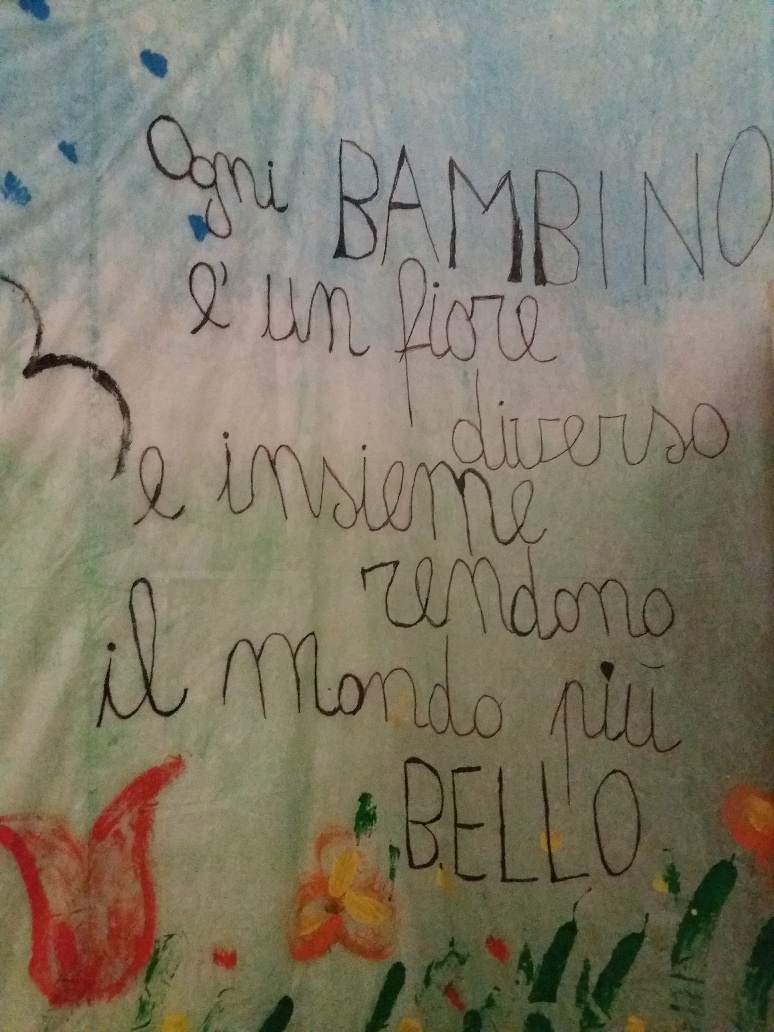 Ogni BAMBINO
è un fiore
diverso
e insieme
rendono
il mondo più
BELLO